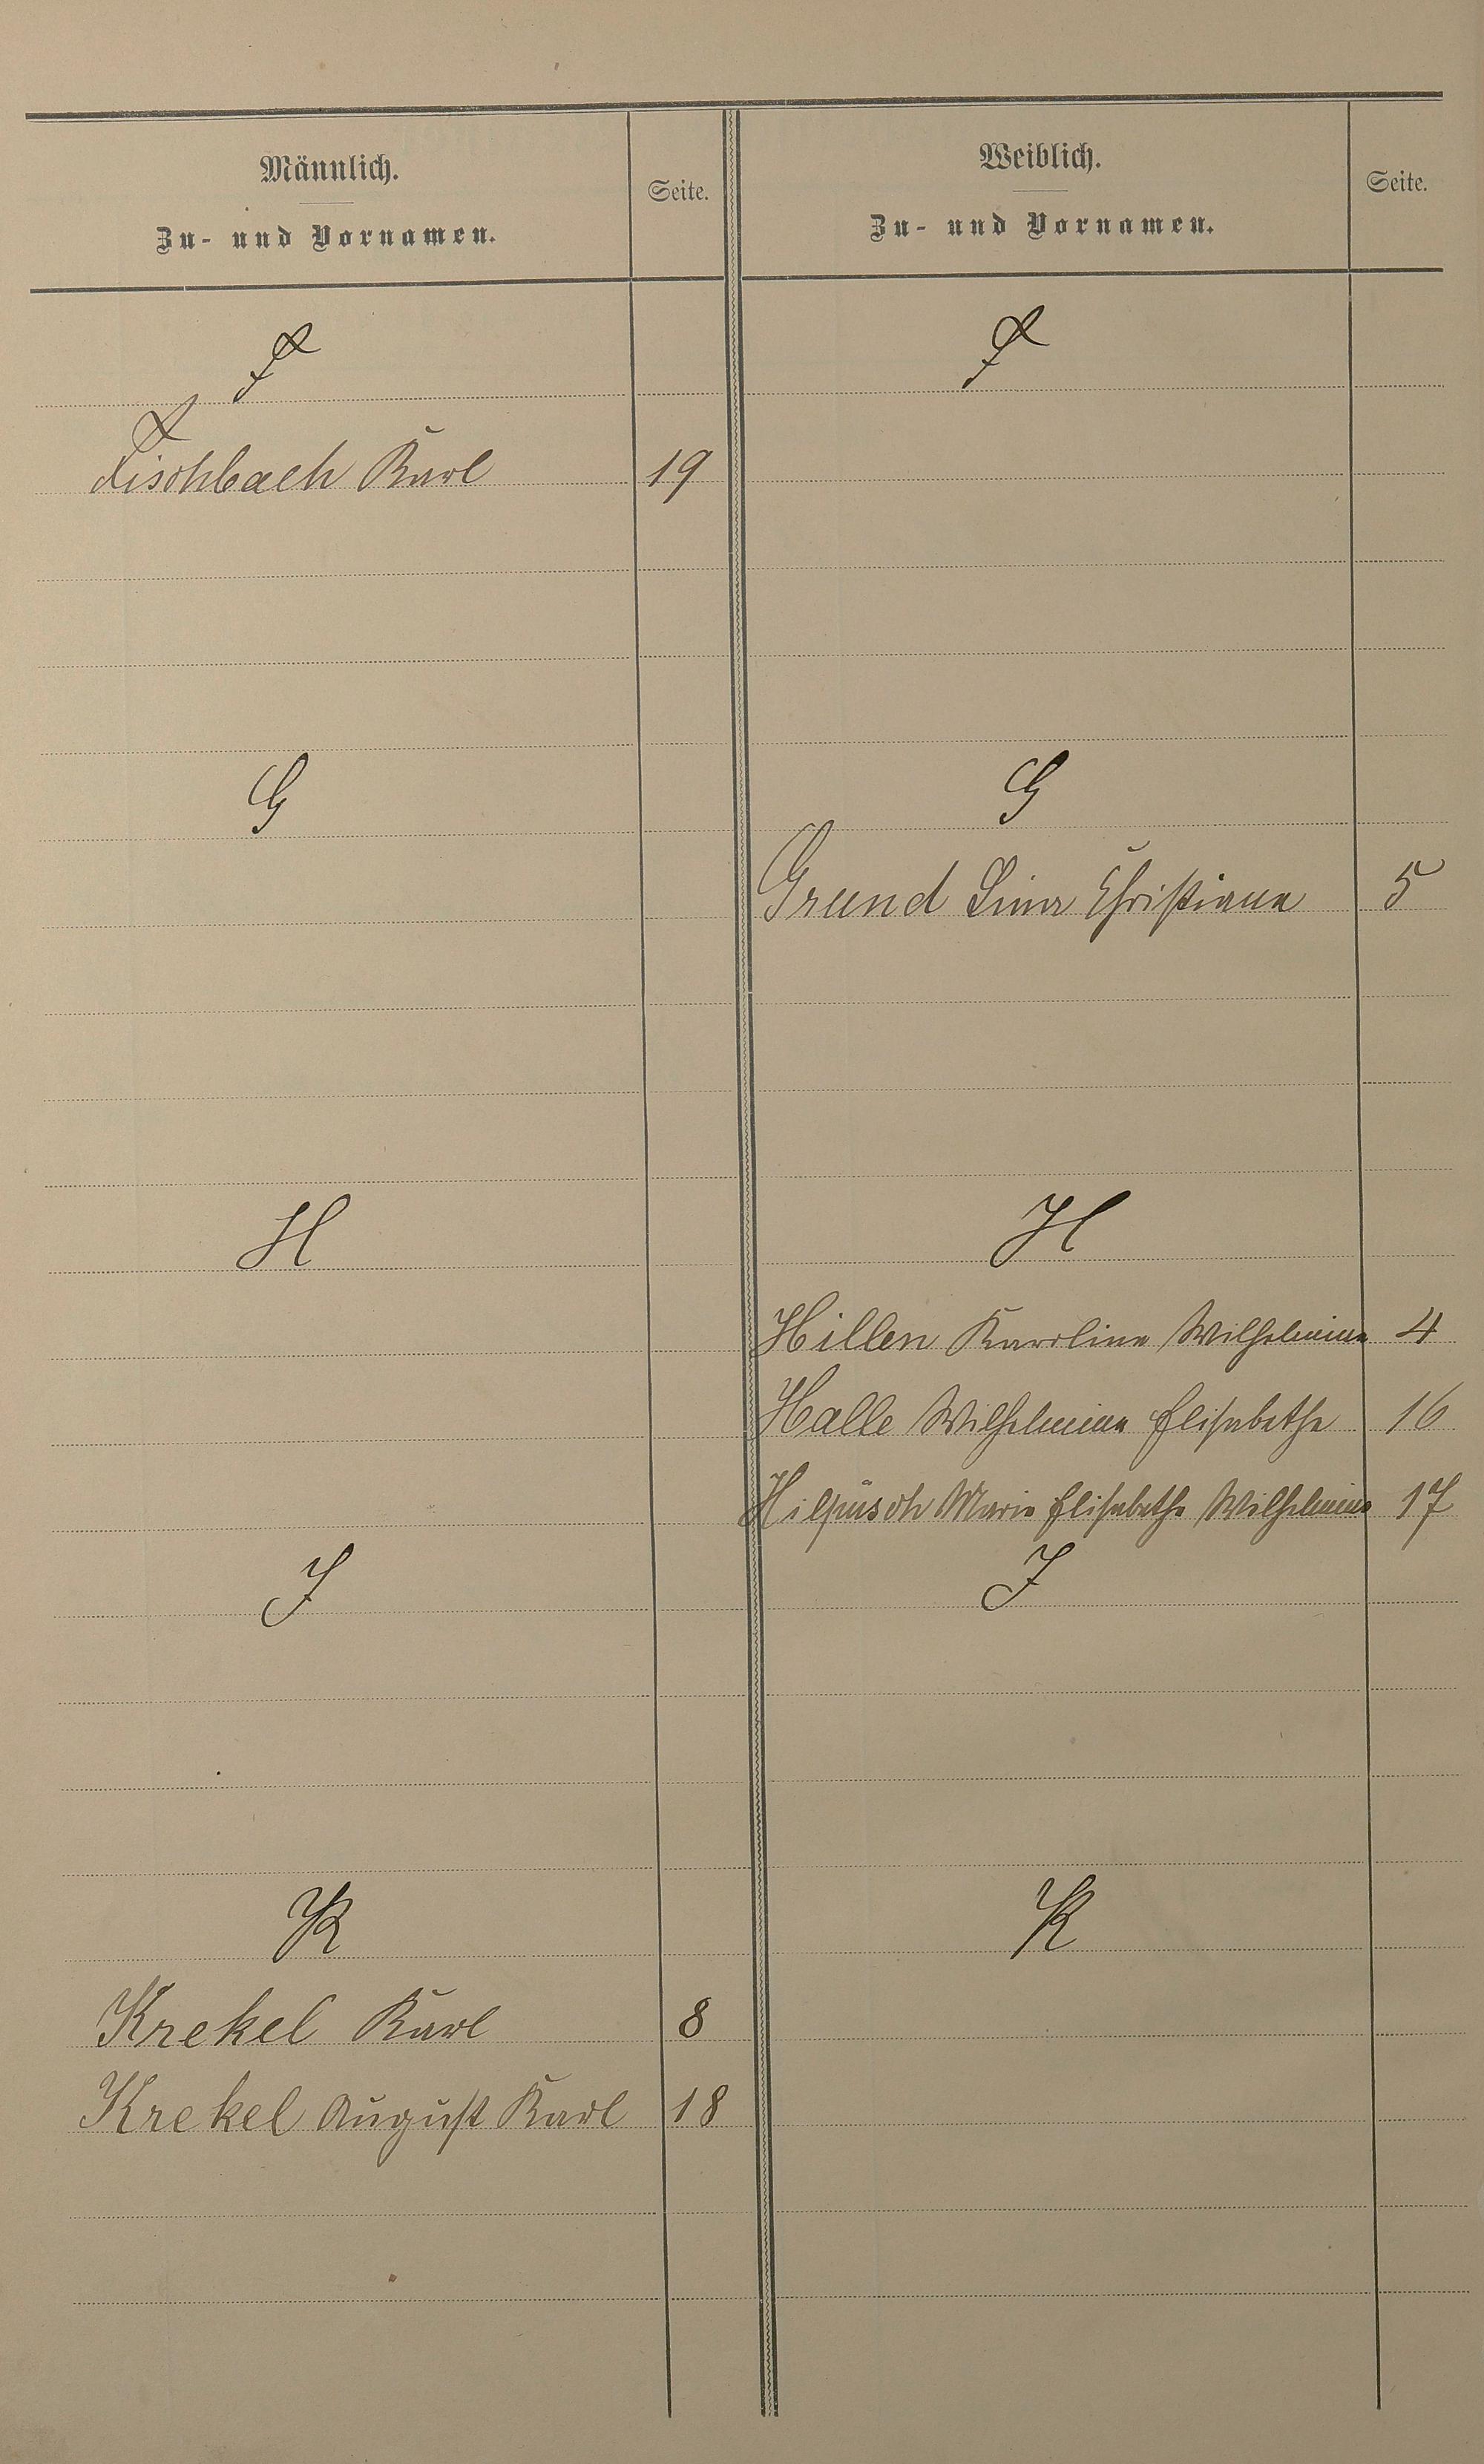 Männlich.
Zu- und Vornamen.
Seite.
Weiblich.
Zu- und Vornamen.
Seite.
F
F
Fischbach Karl 19
G
G
Grund Lina Christiane 5
H
H
Hillen Karoline Wilhelmine 4
Halle Wilhelmine Elisabethe 16
Marie Elisabethe Wilhelmine 17
J
J
K
K
Krekel Karl 8
Krekel August Karl 18